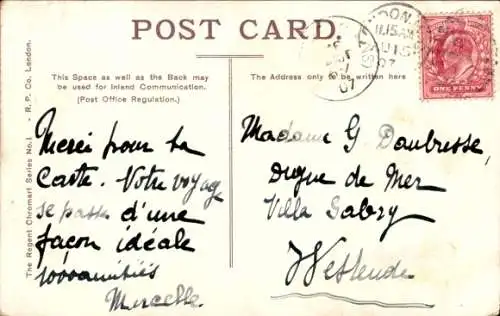 POST CARD.
This Space as well as the Back may
be used for Inland Communication.
(Post Office Regulation.)
The Address only to be written here
The Regent Chromart Series No.1. - R.P. Co. London.
LONDON
11.15 AM
07
07
ONE PENNY
Merci pour ta
Carte. Votre voyage
se passe d'une
façon idéale
1000 amitiés
Marcelle.
Madame G Daubresse,
Digue de Mer
Villa Gabry
Westende